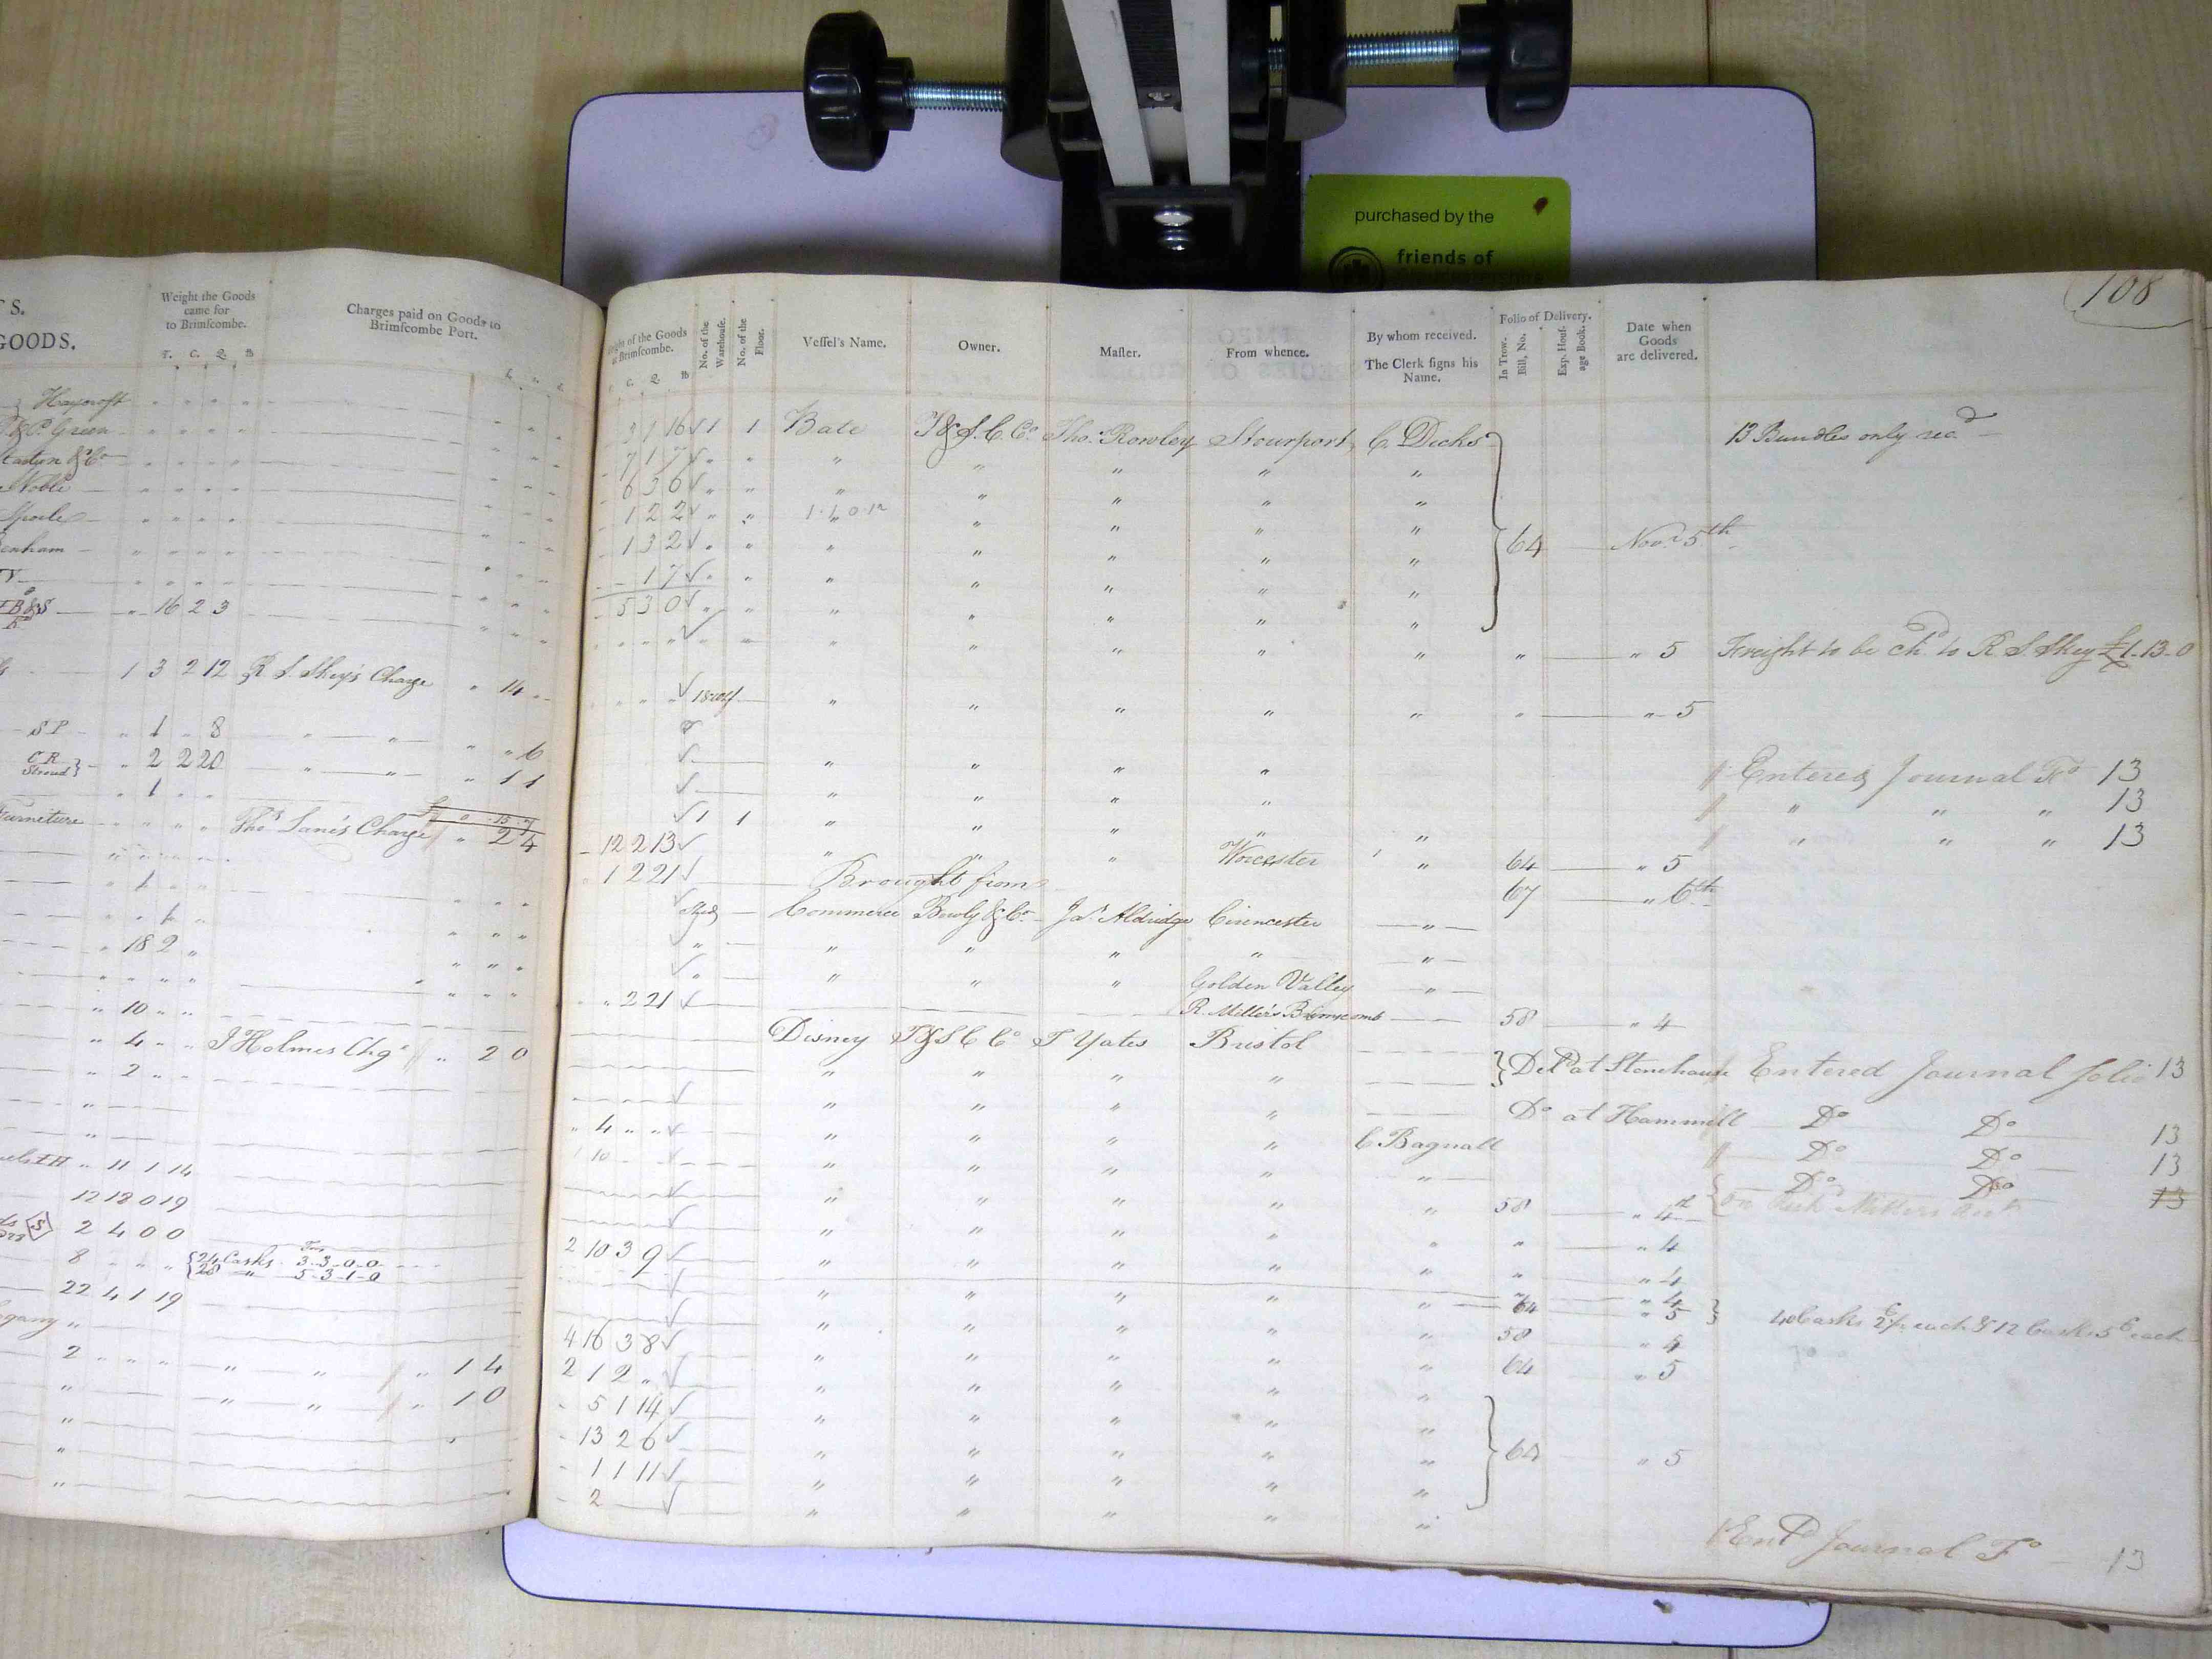 purchased by the
friends of
108
S.
GOODS.
Weight the Goods
came for
to Brimſcombe.
T. C. Q. lb
Charges paid on Goods to
Brimſcombe Port.
Haycroft
& P. Green
Noble
16 2 3
1 3 2 12 R S. Skey's Charge " 14 "
S P " 1 " 8 " " " " 6
C R
Stroud } " 2 2 20 " " " 1 1
" 1 " "
Furneture Thos. Lane's Charge " 2 4
" 1 "
" 1 "
" 18 2 "
" 10 " "
" 4 " " J Holmes Chge " 2 0
" 2 " "
" 11 1 14
12 18 0 19
S 2 4 0 0
8 " " " { 24 Casks 3-3-0-0
28 " 5-3-1-0
22 4 1 19
2 " " " " " " 1 4
" " " " 1 0
of the Goods
Brimſcombe.
C. Q. lb
No. of the
Warehouſe.
No. of the
Floor.
Veſſel's Name.
Owner.
Maſter.
From whence.
By whom received.
The Clerk ſigns his
Name.
Folio of Delivery.
In Trow.
Bill, No.
Exp. Houſ-
age Book.
Date when
Goods
are delivered.
3 1 16 √ 1 1 Bate T&S. C. Co. Tho. Rowley Stourport C. Dicks 13 Bundles only recd
7 1 7 √ " " " " " " "
6 3 6 √ " " " " " " "
1 2 2 √ " " " " " "
1 3 2 √ " " " " " " " 64 Novr 5th
1 7 √ " " " " " " "
5 3 0 √ " " " " " " "
" " " " √ " " " " " " " " " 5 Freight to be chd. to R S Skey £1-13-0
√ " " " " " " " 5
√ " " " Entered Journal Fo 13
√ " " " " " " 13
√ 1 1 " " " " " " " 13
12 2 13 √ " " " Worcester " 64 " 5
1 2 21 √ Brought from 67 " 6th
√ Shed Commerce Bowly & Co. Jas Aldridge Cirencester "
√ " " " " " "
√ " " " " Golden Valley "
" 2 21 √ R. Miller's Brimscomb 58 " 4
Disney T&S C Co T Yates Bristol } Deld at Stonehouse Entered Journal folio 13
" " " "
√ " " " " Do at Hammill Do Do 13
" 4 " " √ " " " " C Bagnall Do Do 13
10 √ " " " " " Do Do 13
√ " " " " " 58 " 4th
√ " " " " " " " 4
2 10 3 9 √ " " " " " " " 4
√ " " " " " 64 " 5 } 40 Casks 2/ each & 12 Casks 5d each
√ " " " " " 58 " 4
4 16 3 8 √ " " " " " 64 " 5
2 12 " √ " " " " "
5 1 14 √ " " " " "
13 2 6 √ " " " " " 64 " 5
1 1 11 √ " " " " "
2 √ " " " " "
Entd Journal Fo 13